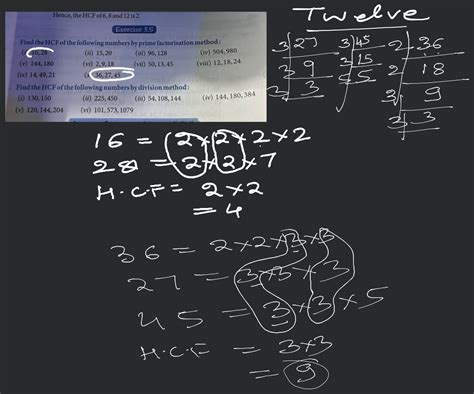 Hence, the HCF of 6, 8 and 12 is 2.
Exercise 3.5
Find the HCF of the following numbers by prime factorisation method :
(i) 16, 28 (ii) 15, 20 (iii) 96, 128 (iv) 504, 980
(v) 144, 180 (vi) 2, 9, 18 (vii) 50, 13, 45 (viii) 12, 18, 24
(ix) 14, 49, 21 (x) 36, 27, 45
Find the HCF of the following numbers by division method :
(i) 130, 150 (ii) 225, 450 (iii) 54, 108, 144 (iv) 144, 180, 384
(v) 120, 144, 204 (vi) 101, 573, 1079
Twelve
3 27
3 9
3 3
3 45
3 15
5 5
2 36
2 18
3 9
3 3
16 = 2×2×2×2
28 = 2×2×7
H.C.F = 2×2
= 4
36 = 2×2×3×3
27 = 3×3×3
45 = 3×3×5
H.C.F = 3×3
= 9